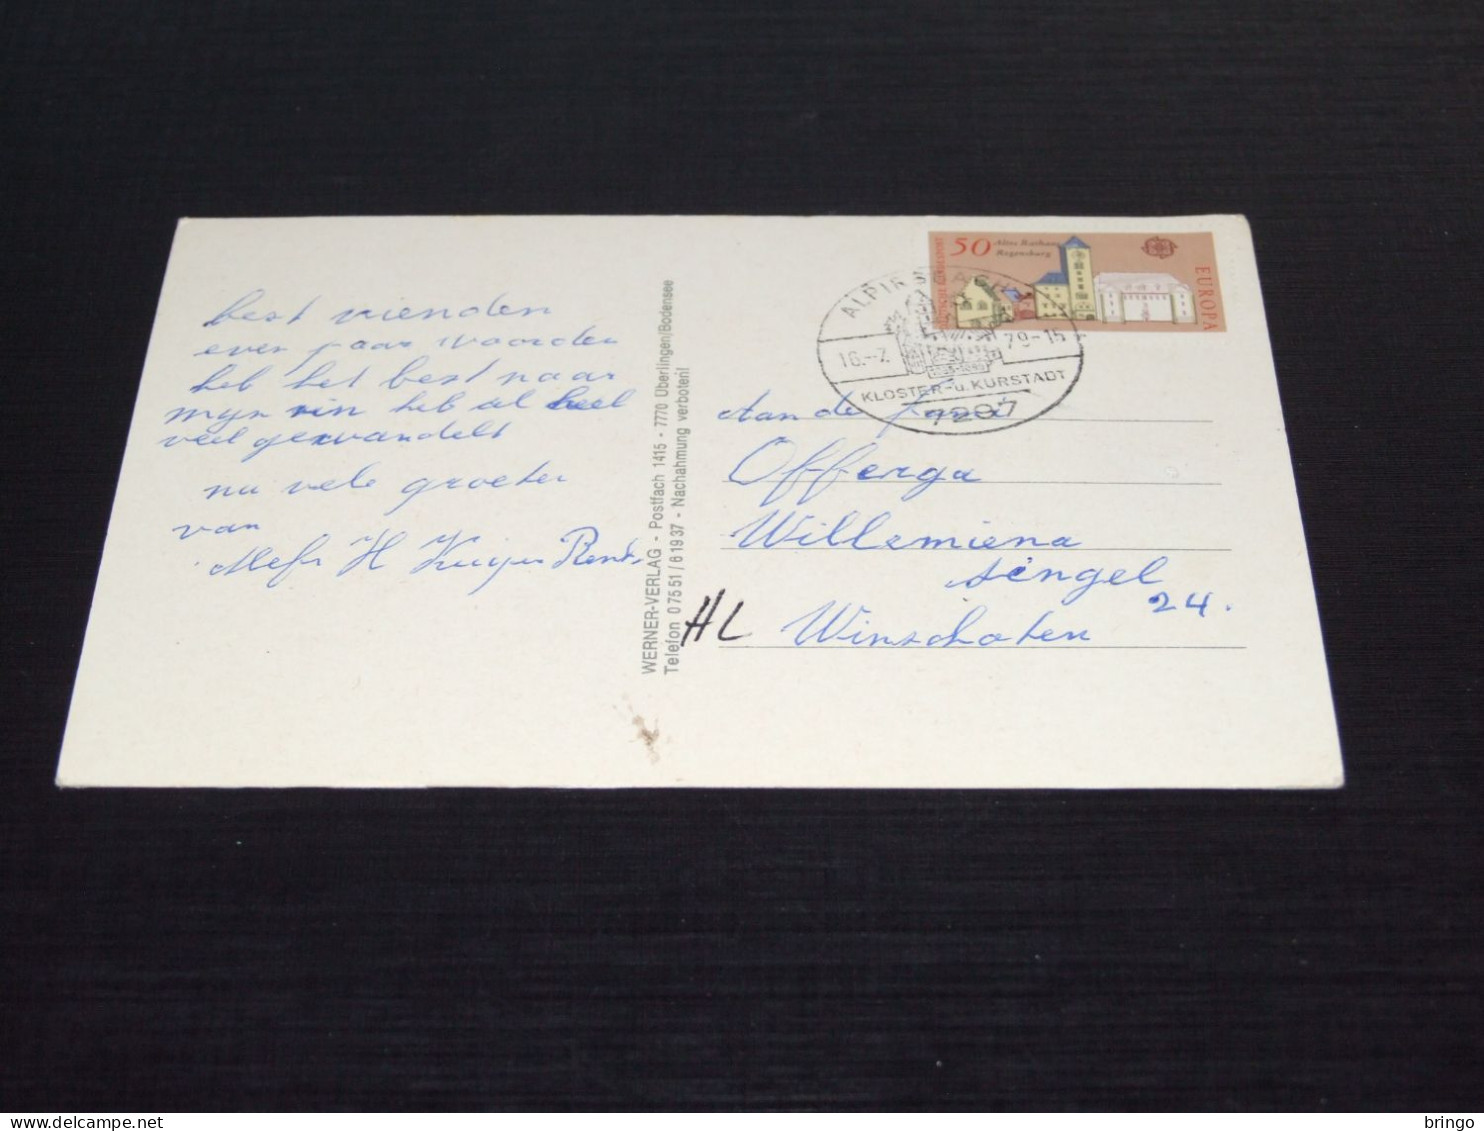 best vrienden
even paar woorden
heb het best naar
mijn zin heb al heel
veel gewandelt
nu vele groeten
van
Mefr H Kuiper
WERNER-VERLAG - Postfach 1415 - 7770 Überlingen/Bodensee
Telefon 07551/61937 - Nachahmung verboten!
50 Altes Rathaus
Regensburg
EUROPA
ALPIRSBACH
16.-7. 79-15
KLOSTER- u. KURSTADT
7297
Aan de fam
Offerga
Willemiena
singel
24.
HL Winschoten
bringo